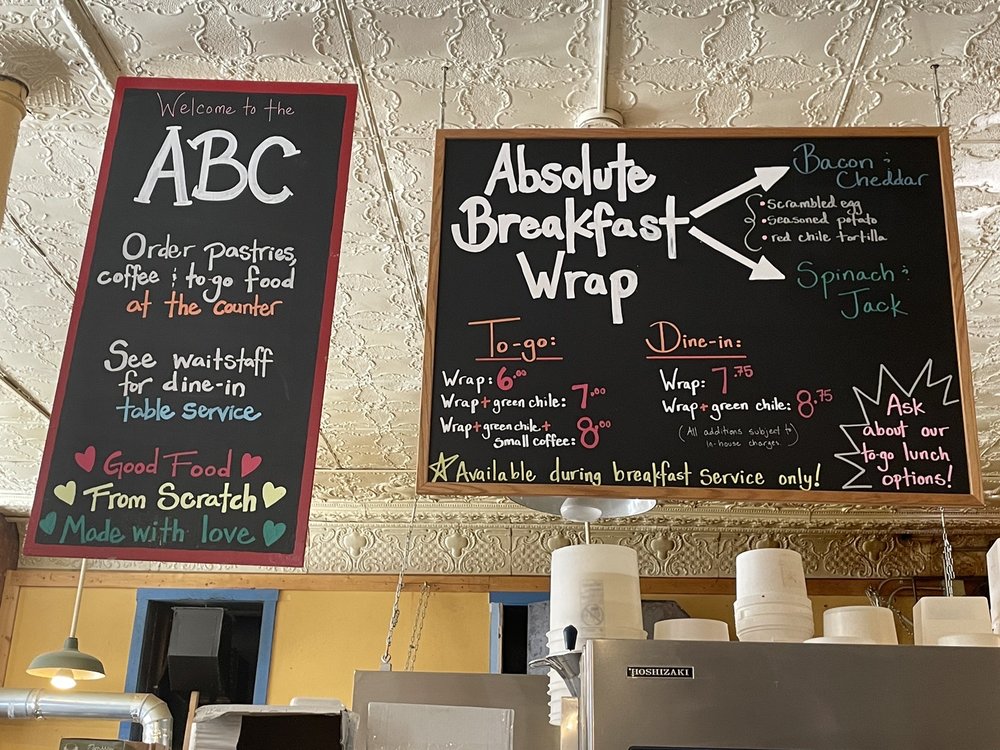 Welcome to the
ABC
Order pastries,
coffee & to-go food
at the counter
See waitstaff
for dine-in
table service
Good Food
From Scratch
Made with love
Absolute
Breakfast
Wrap
Bacon &
Cheddar
• scrambled egg
• seasoned potato
• red chile tortilla
Spinach &
Jack
To-go:
Wrap: 6.00
Wrap + green chile: 7.00
Wrap + green chile +
small coffee: 8.00
Dine-in:
Wrap: 7.75
Wrap + green chile: 8.75
(All additions subject to
in-house charges.)
Available during breakfast service only!
Ask
about our
to-go lunch
options!
HOSHIZAKI